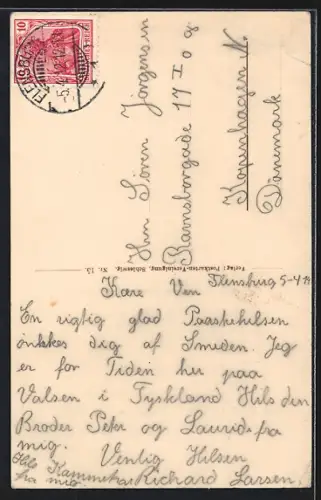 10
FLENSBURG
Hrn Sören Jörgensen
Ravnsborgade 17 I o g
Kopenhagen N.
Dänemark
Verlag: Postkarten-Vereinigung, Schleswig. Nr. 15.
Flensburg 5-4
Kære Ven
En rigtig glad Paaskehilsen
önskes dig af Smeden. Jeg
er for Tiden her paa
Valsen i Tyskland Hils din
Broder Petr og Laurids fra
mig. Venlig Hilsen
Richard Larsen
Hils
fra mig